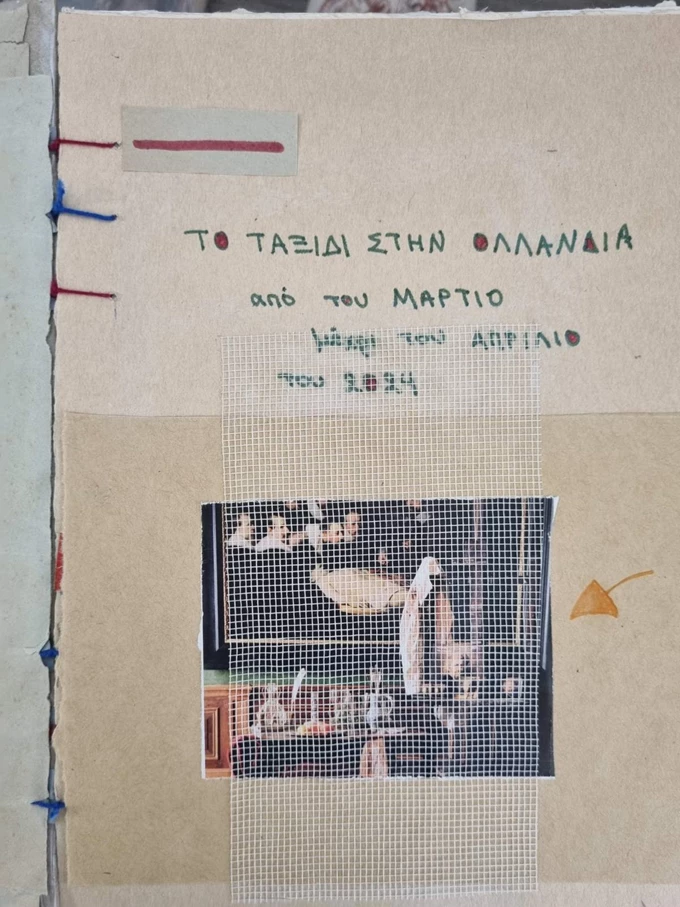 ΤΟ ΤΑΞΙΔΙ ΣΤΗΝ ΟΛΛΑΝΔΙΑ
από του ΜΑΡΤΙΟ
μέχρι του ΑΠΡΙΛΙΟ
του 2024